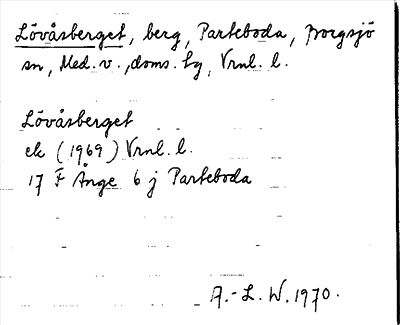 Lövåsberget, berg, Parteboda, Borgsjö
sn, Med. v., doms. tg, Vrnl. l.
Lövåsberget
ek (1969) Vrnl. l.
17 F Ånge 6 j Parteboda
A.-L. W. 1970.